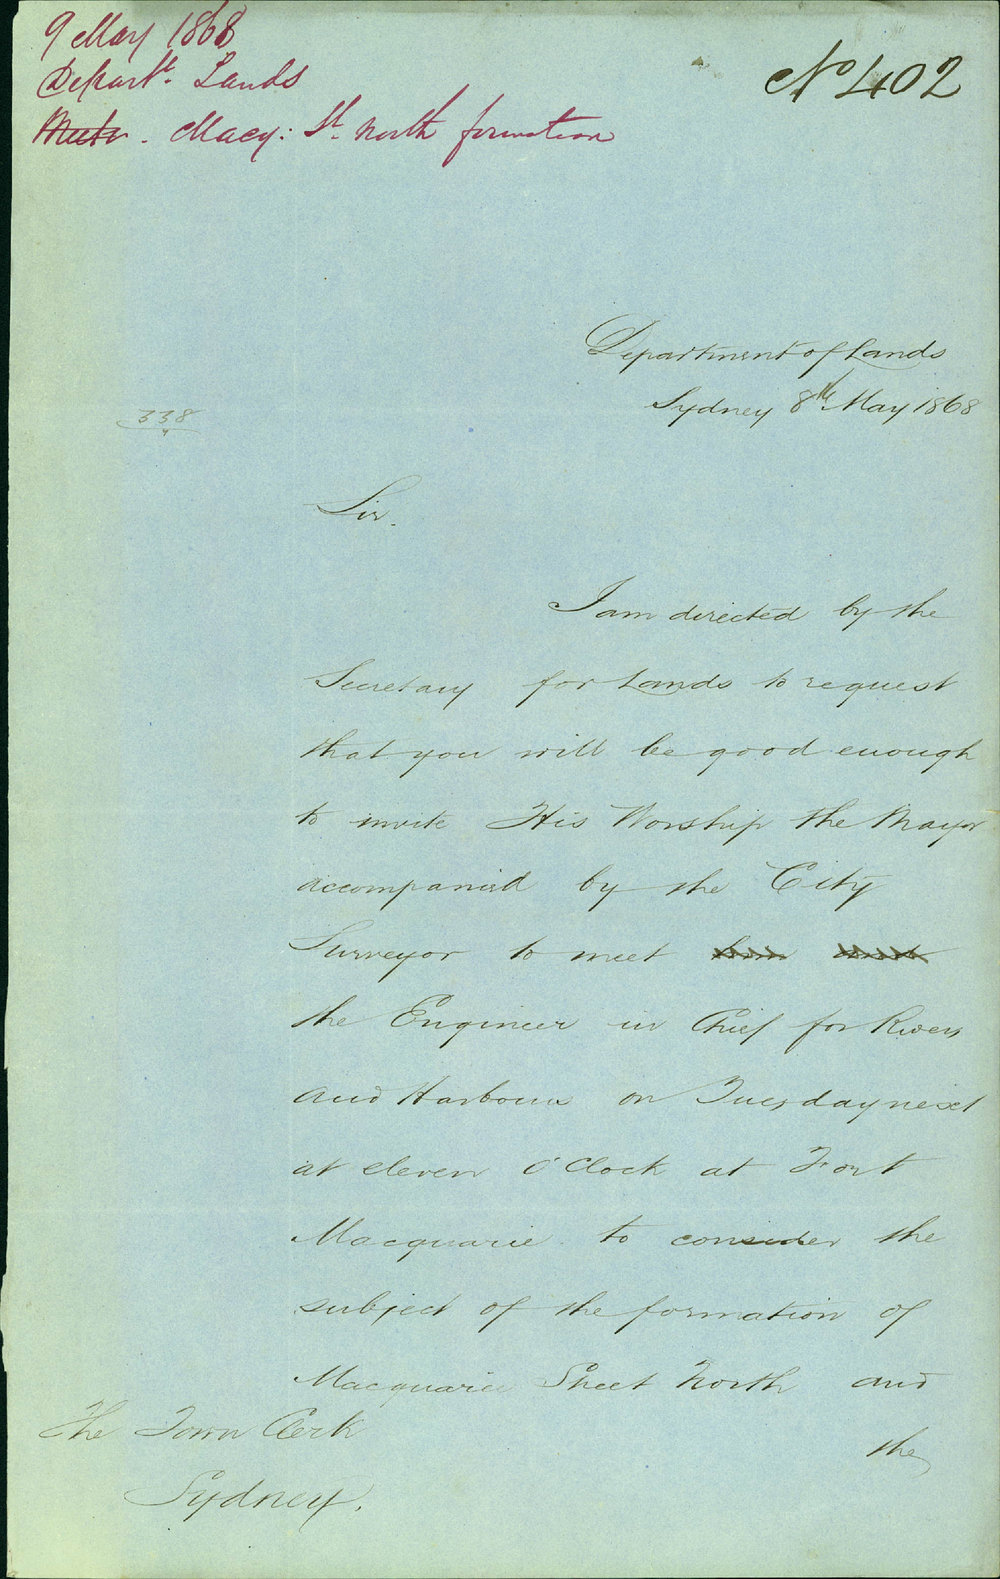 9 May 1868
Depart^t. Lands
No 402
Macq: St. North formation
Department of Lands
Sydney 8th May 1868
338
4
Sir.
I am directed by the
Secretary for Lands to request
that you will be good enough
to invite His Worship the Mayor
accompanied by the City
Surveyor to meet
the Engineer in Chief for Rivers
and Harbours on Tuesday next
at eleven O'Clock at Fort
Macquarie to consider the
subject of the formation of
Macquarie Street North and
the
The Town Clerk
Sydney.